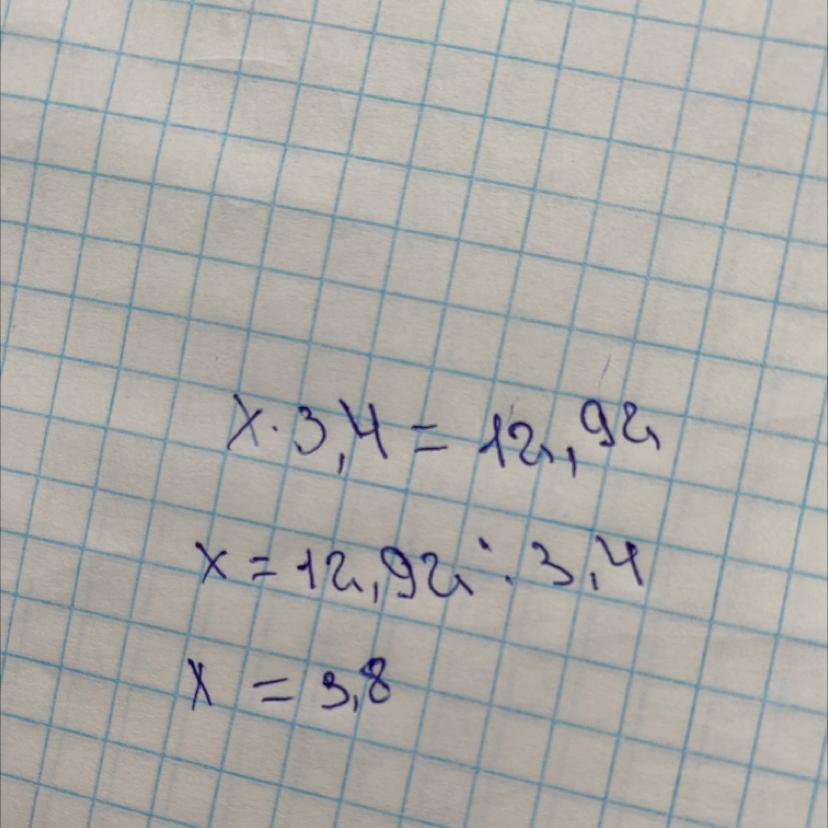 x · 3,4 = 12,92
x = 12,92 : 3,4
x = 3,8